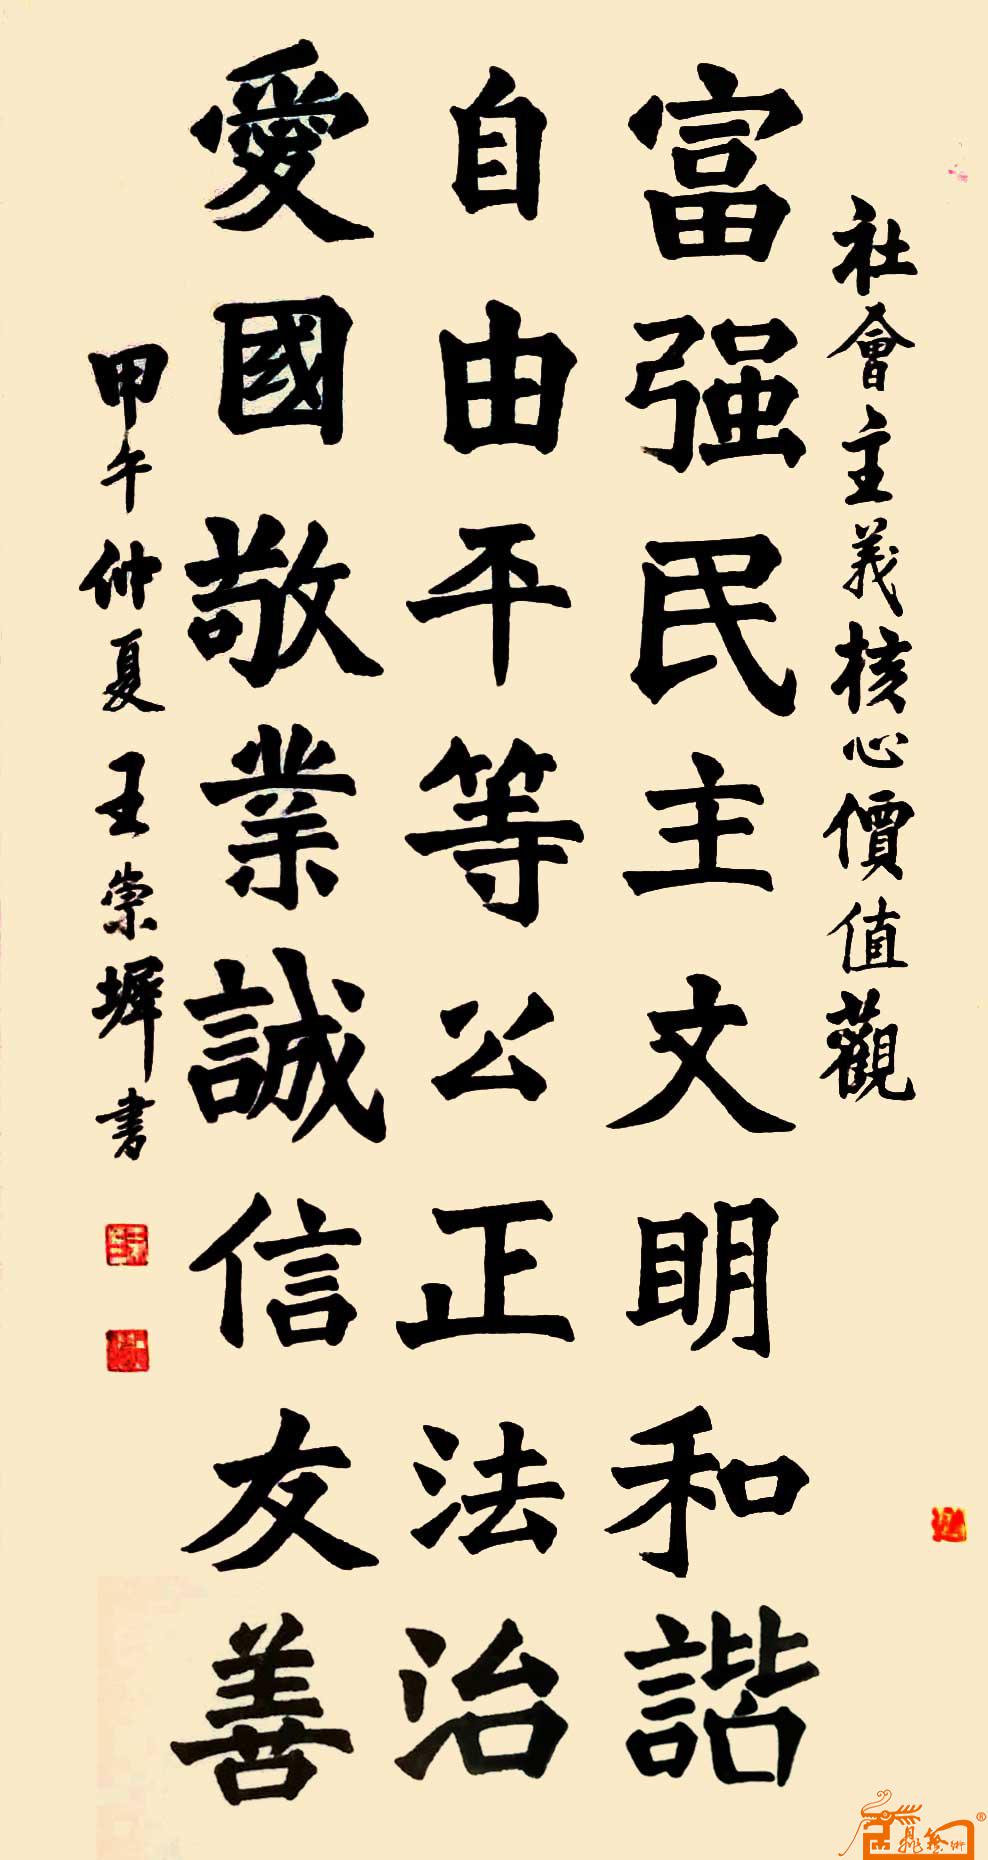 社會主義核心價值觀
富强民主文明和諧
自由平等公正法治
愛國敬業誠信友善
甲午仲夏王崇墀书